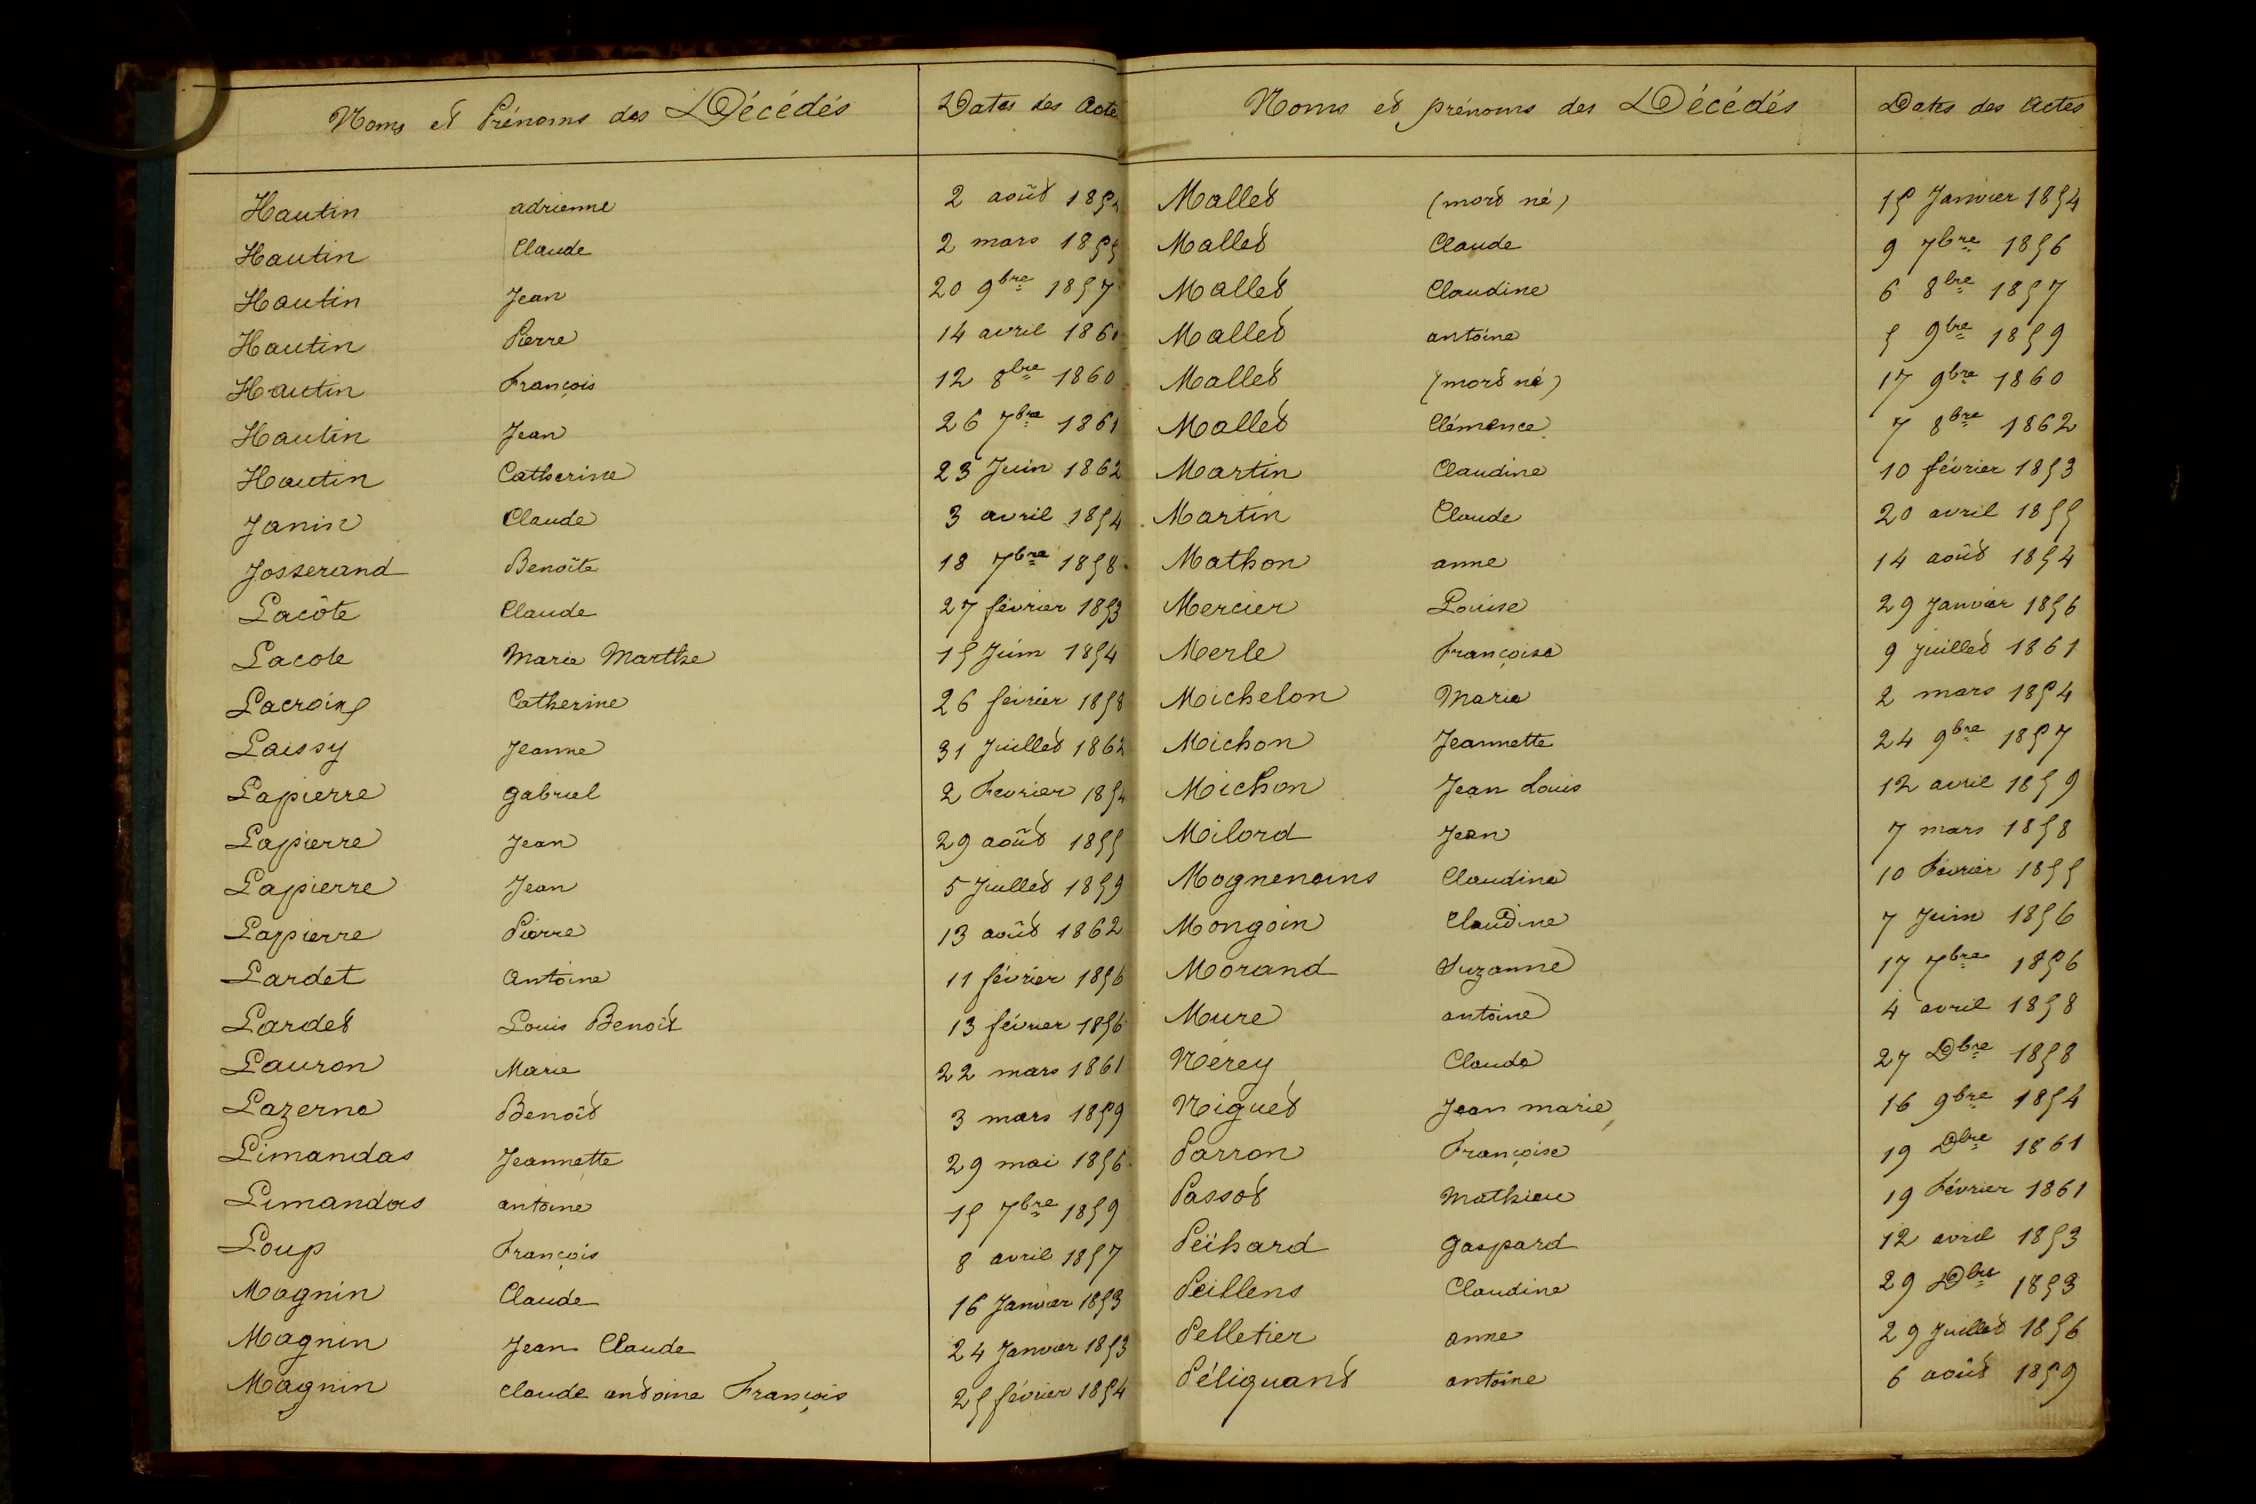 Noms et Prénoms des Décédés Dates des Acte
Hautin adrienne 2 août 1854
Hautin Claude 2 mars 1855
Hautin Jean 20 9bre 1857
Hautin Pierre 14 avril 1860
Hautin François 12 8bre 1860
Hautin Jean 26 7bre 1861
Hautin Catherine 23 Juin 1862
Janin Claude 3 avril 1854
Josserand Benoîte 18 7bre 1858
Lacôte Claude 27 février 1853
Lacote Marie Marthe 15 Juin 1854
Lacroix Catherine 26 février 1858
Laissy Jeanne 31 Juillet 1862
Lapierre gabriel 2 Fevrier 1854
Lapierre Jean 29 août 1855
Lapierre Jean 5 Juillet 1859
Lapierre Pierre 13 août 1862
Lardet Antoine 11 février 1856
Lardet Louis Benoît 13 février 1856
Lauron Marie 22 mars 1861
Lazerne Benoît 3 mars 1859
Limandas Jeannette 29 mai 1856
Limandas antoine 15 7bre 1859
Loup François 8 avril 1857
Magnin Claude 16 Janvier 1853
Magnin Jean Claude 24 Janvier 1853
Magnin Claude antoine François 25 février 1854
Noms et prénoms des Décédés Dates des Actes
Mallet (mort né) 15 Janvier 1854
Mallet Claude 9 7bre 1856
Mallet Claudine 6 8bre 1857
Mallet antoine 5 9bre 1859
Mallet (mort né) 17 9bre 1860
Mallet Clémence 7 8bre 1862
Martin Claudine 10 février 1853
Martin Claude 20 avril 1855
Mathon anne 14 août 1854
Mercier Louise 29 Janvier 1856
Merle Françoise 9 juillet 1861
Michelon Marie 2 mars 1854
Michon Jeannette 24 9bre 1857
Michon Jean Louis 12 avril 1859
Milord Jean 7 mars 1858
Mognenains Claudine 10 Février 1855
Mongoin Claudine 7 Juin 1856
Morand Suzanne 17 7bre 1856
Mure antoine 4 avril 1858
Nérey Claude 27 Dbre 1858
Niguet Jean marie 16 9bre 1854
Parron Françoise 19 Dbre 1861
Passot Mathieu 19 Février 1861
Peïhard gaspard 12 avril 1853
Peillens Claudine 29 Dbre 1853
Pelletier anne 29 Juillet 1856
Péliquant antoine 6 août 1859